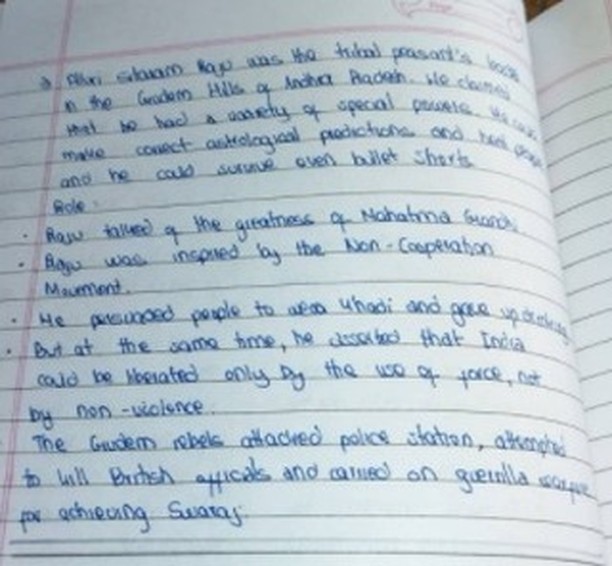 Alluri Sitaram Raju was the tribal peasant's
in the Gudem Hills of Andhra Pradesh. He claimed
that he had a variety of special powers. He could
make correct astrological predictions and heal people
and he could survive even bullet shorts
Role:
• Raju talked of the greatness of Mahatma Gandhi
• Raju was inspired by the Non-Cooperation
Movement.
• He persuaded people to wear Khadi and gave up drinking
• But at the same time, he asserted that India
could be liberated only by the use of force, not
by non-violence.
The Gudem rebels attacked police station, attempted
to kill British officals and carried on guerrilla warfare
for achieving Swaraj.